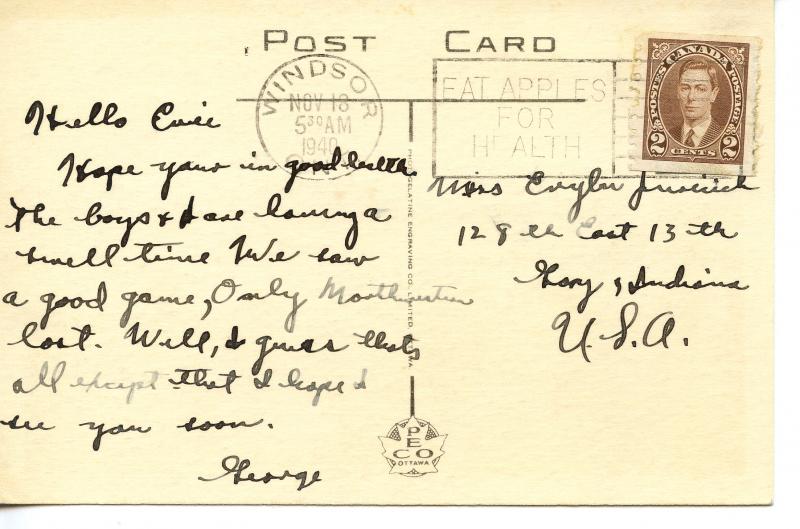 POST CARD
WINDSOR
NOV 18
5 30 AM
1940
EAT APPLES
FOR
HEALTH
POSTES CANADA POSTAGE
2 CENTS 2
Hello Evie
Hope your in good health.
The boys & I are having a
swell time We saw
a good game, Only Northwestern
lost. Well, I guess thats
all except that I hope I
see you soon.
George
Miss Evyln
128 th East 13 th
Gary, Indiana
U.S.A.
PHOTOGELATINE ENGRAVING CO. LIMITED, OTTAWA
PECO
OTTAWA